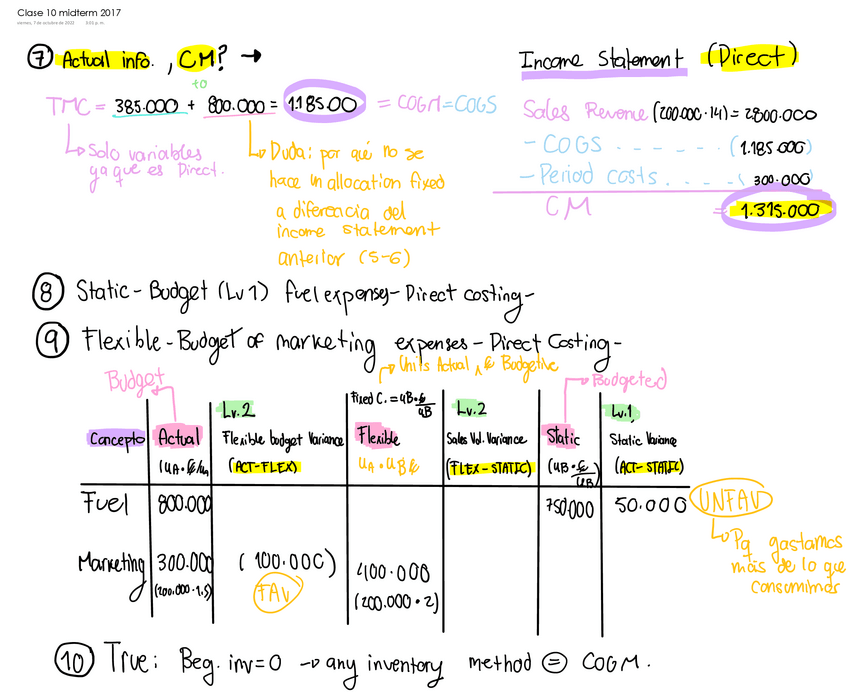 Clase 10 midterm 2017
viernes, 7 de octubre de 2022 3:05 p. m.
⑦ Actual info. , CM? →
to
TMC = 385.000 + 800.000 = 1.185.00 = COGM=COGS
↳ Solo variables
ya que es Direct.
↳ Duda: por qué no se
hace un allocation fixed
a diferencia del
income statement
anterior (5-6)
Income Statement (Direct)
Sales Revenue (200.000 · 14) = 2.800.000
- COGS - - - - - - (1.185.000)
- Period costs. . - - . ( 300.000)
CM = 1.315.000
⑧ Static-Budget (Lv 1) fuel expenses- Direct costing-
⑨ Flexible-Budget of marketing expenses - Direct Costing-
Units Actual , € Budgetive
Budget
Budgeted
Fixed C. = uB·€/uB
Lv.2
Lv.2
Lv.1
Concepto Actual Flexible budget Variance Flexible Sales Vol. Variance Static Static Variance
(UA · €/UA (ACT-FLEX) UA · UB€ (FLEX-STATIC) (UB·€/UB) (ACT-STATIC)
Fuel 800.000 750.000 50.000 UNFAV
↳ Pq gastamos
más de lo que
consumimos
Marketing 300.000 (100.000) 400.000
(200.000·1.5) FAV (200.000 · 2)
⑩ True: Beg. inv=0 → any inventory method = COGM.